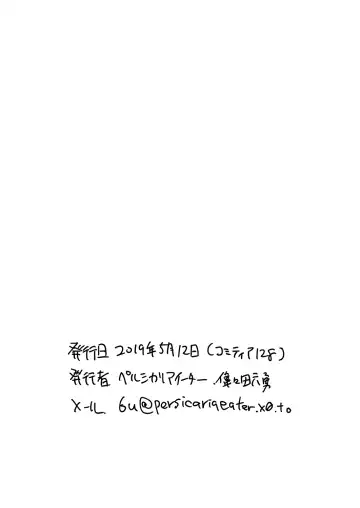 発行日 2019年5月12日(コミティア128)
発行者 ペルシカリアイーター 偉々田六勇
メール 6u@persicariaeater.x0.to